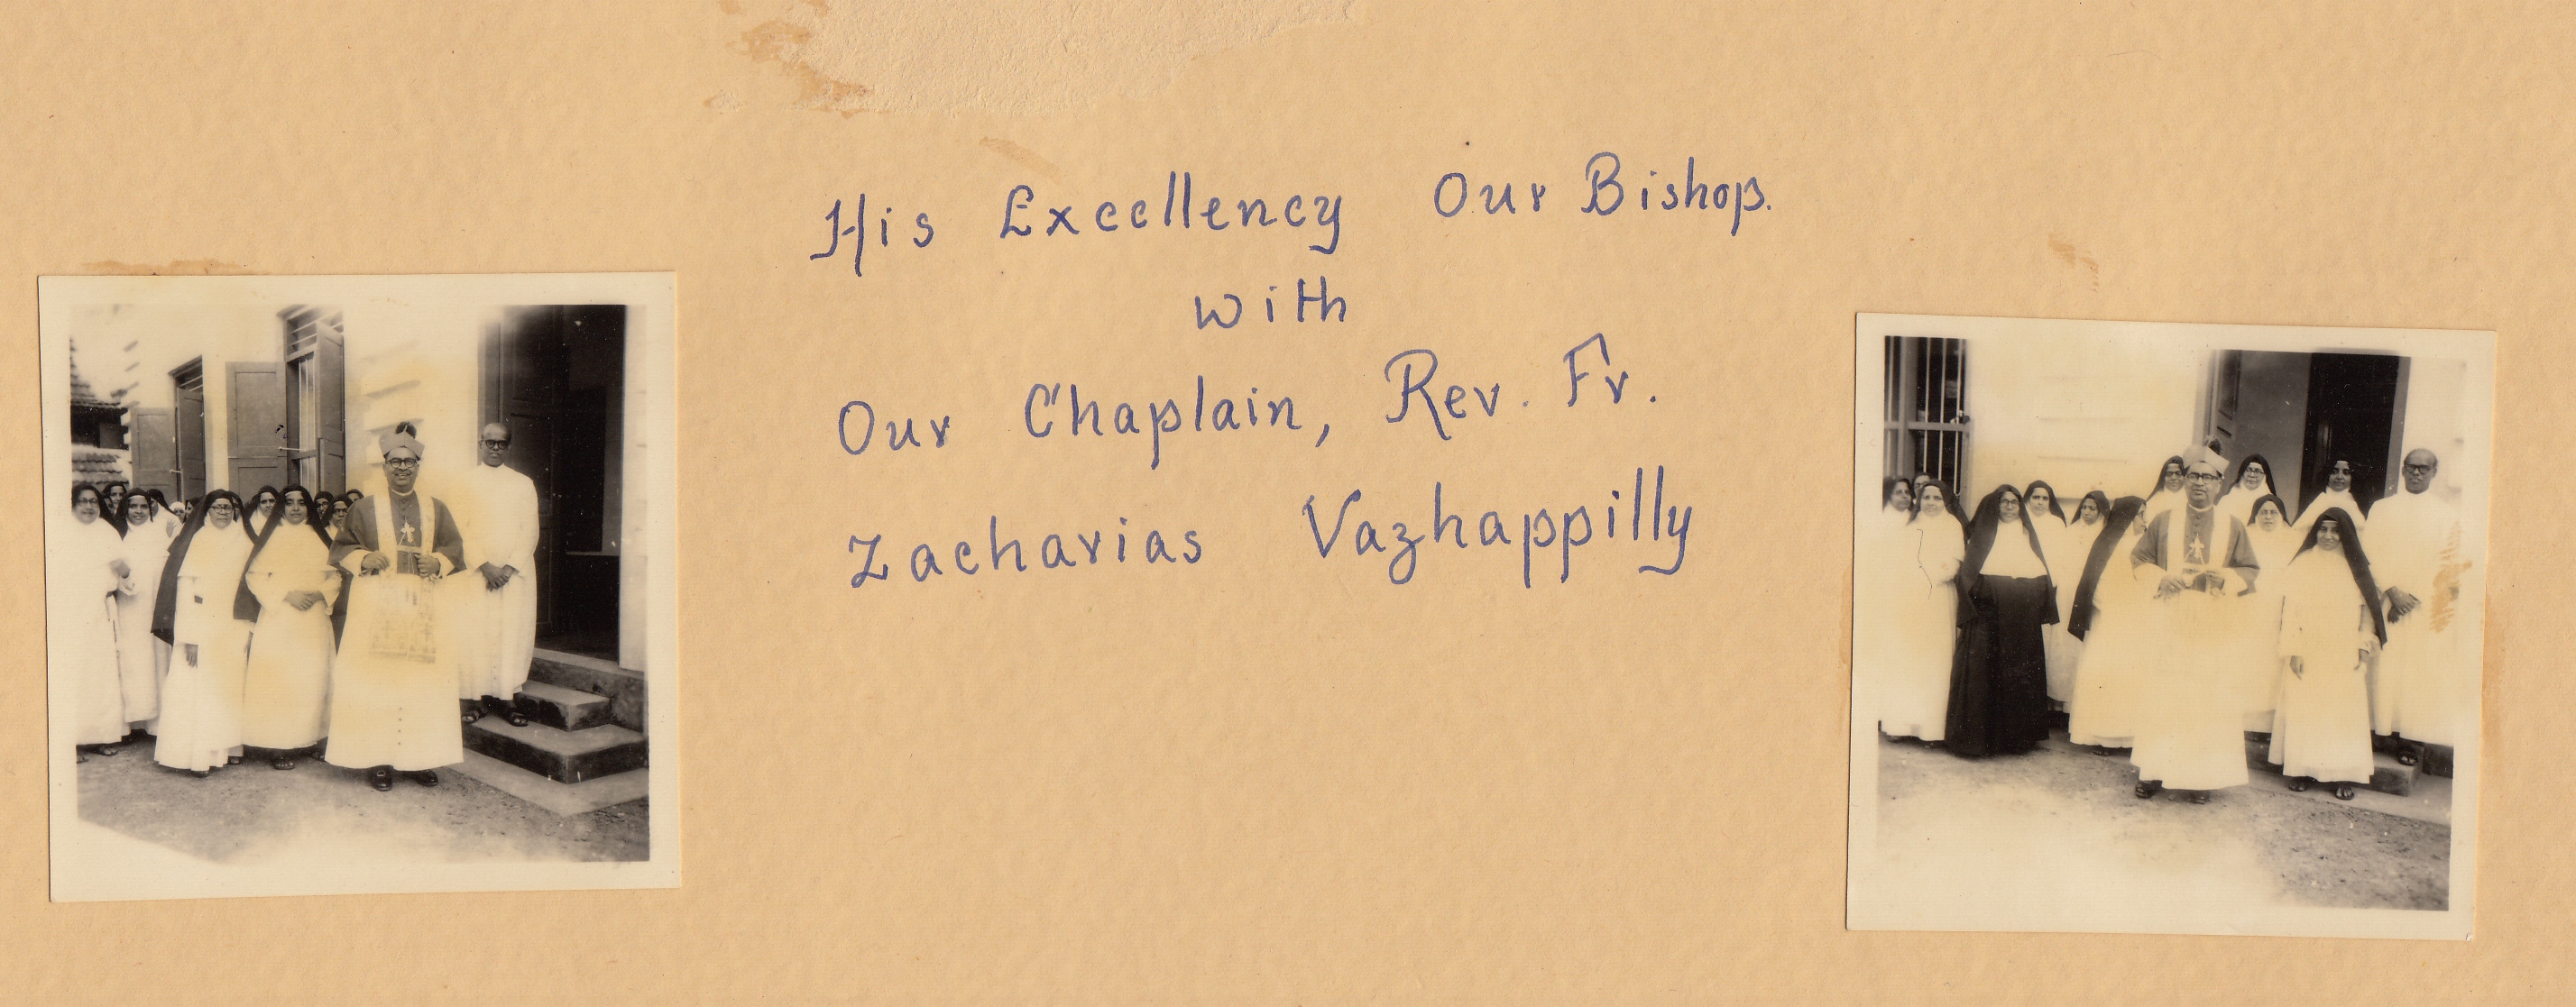 His Excellency Our Bishop.
with
Our Chaplain, Rev. Fr.
Zacharias Vazhappilly